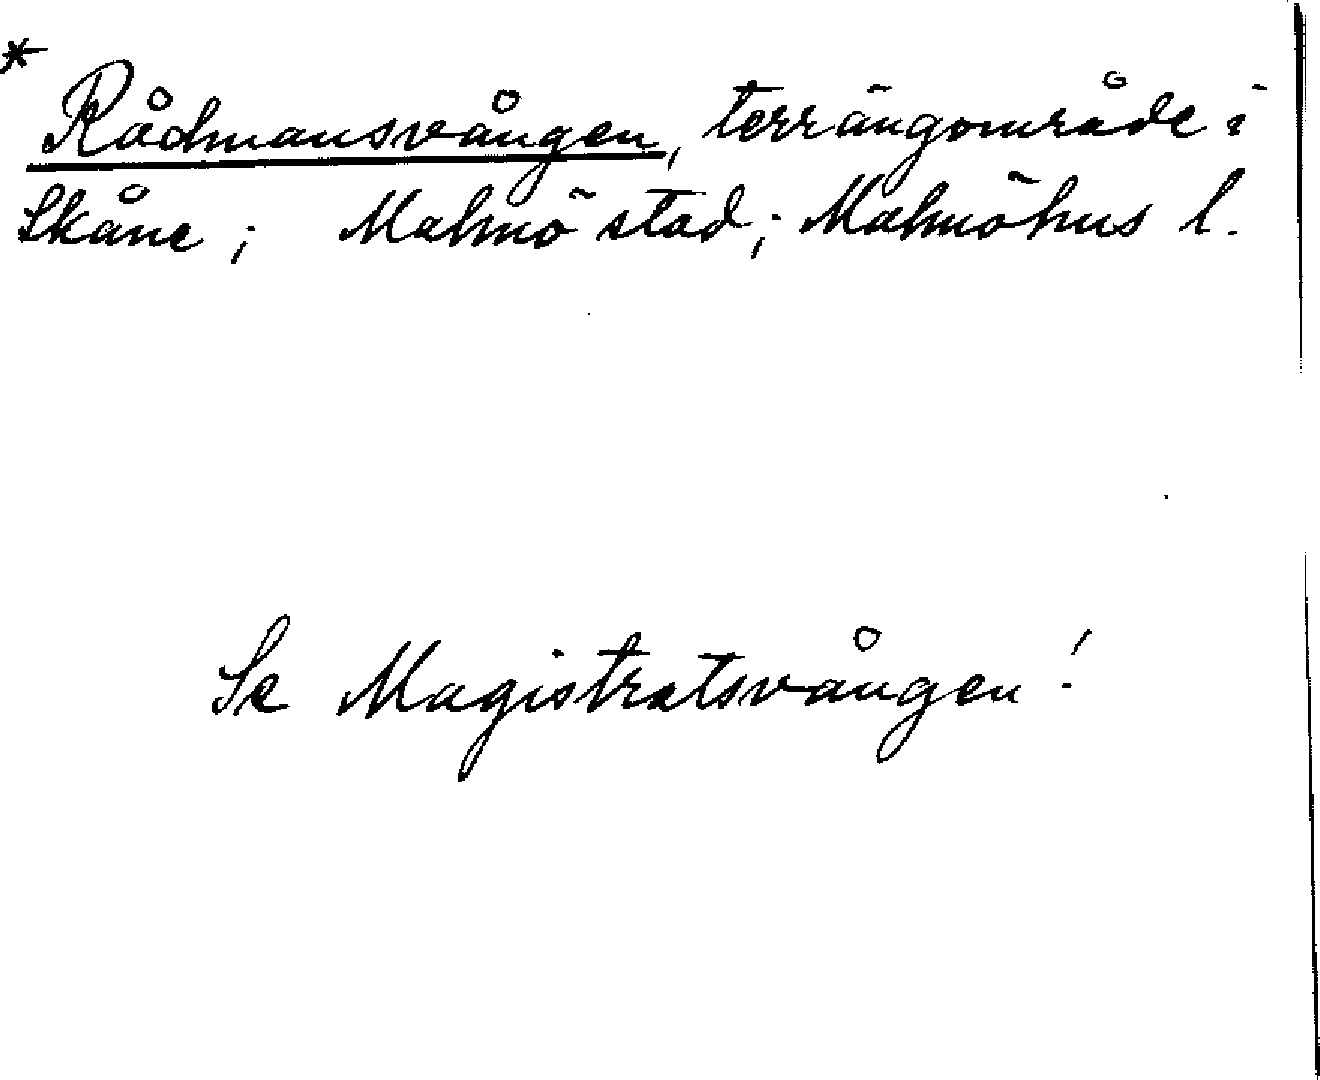 * Rådmansvången, terrängområde i
Skåne; Malmö stad; Malmöhus l.
Se Magistratsvången!